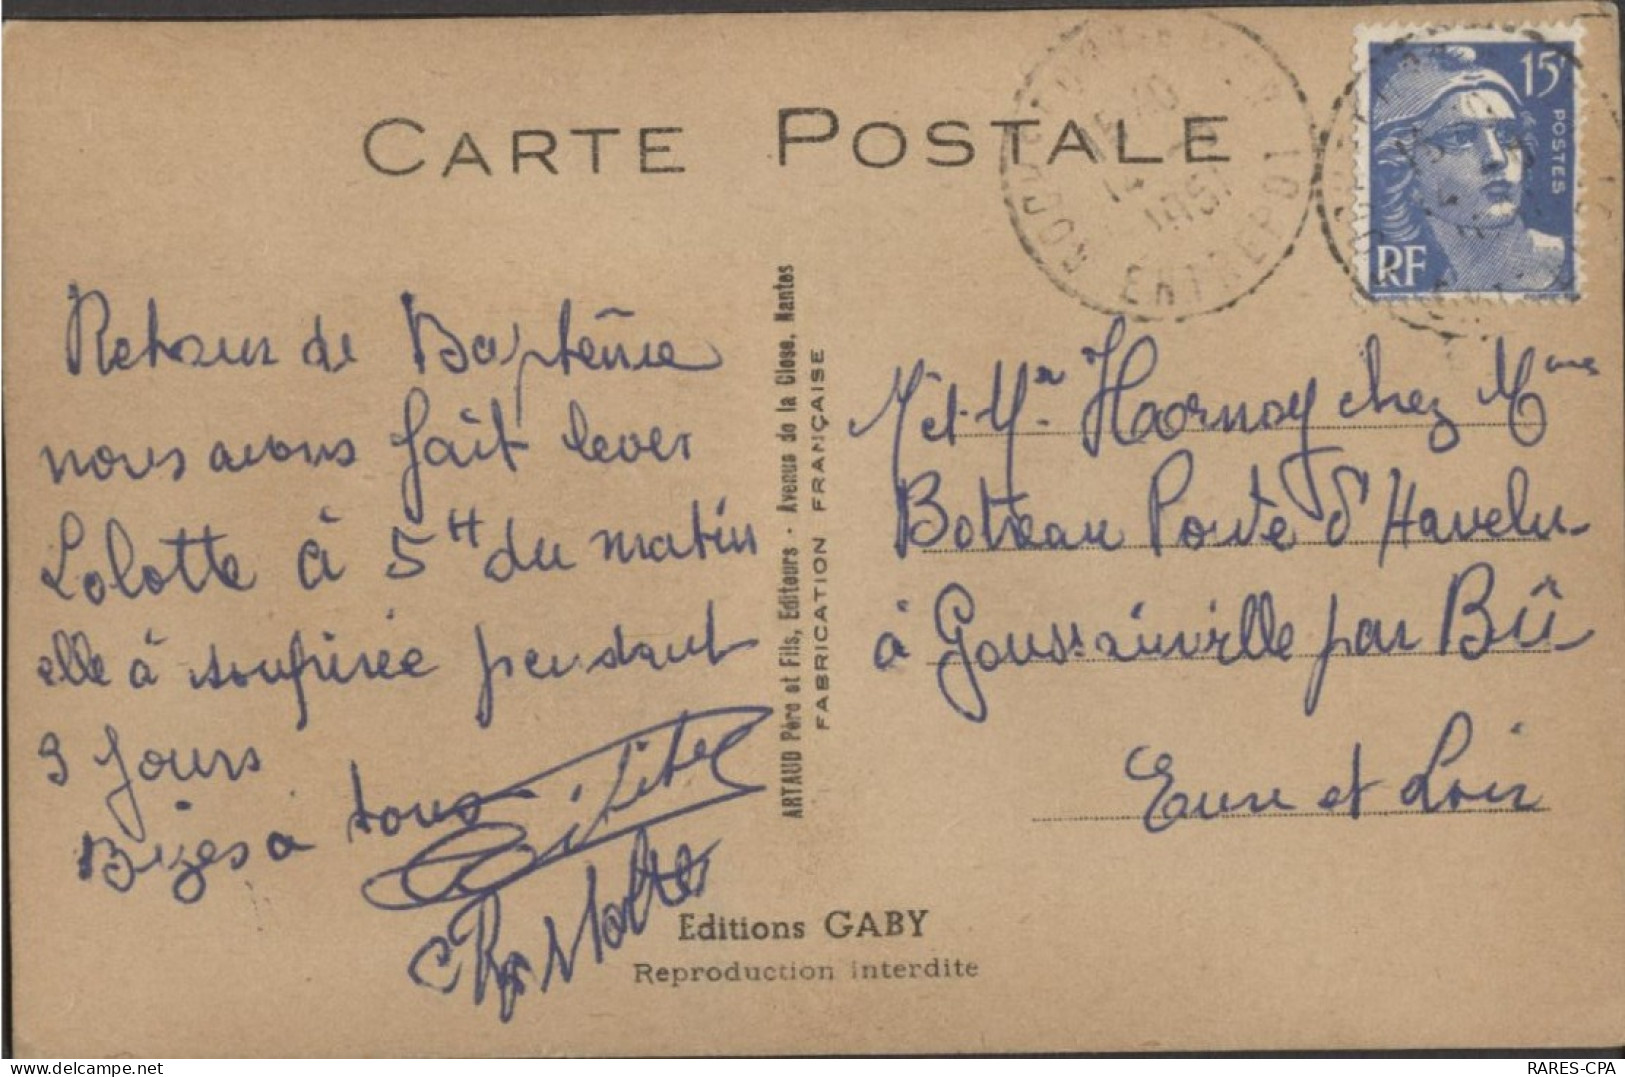 CARTE POSTALE
ENTREPOT
1951
15F
POSTES
RF
Retour de Baptême
nous avons fait lever
Lolotte à 5H du matin
elle à soupirée pendant
3 Jours
Bizes à tous
Editions GABY
Reproduction interdite
ARTAUD Père et Fils, Editeurs - Avenue de la Close, Nantes
FABRICATION FRANÇAISE
Mr et Mr Hornoy chez Mme
Botreau Porte d'Havelu
à Goussainville par Bû
Eure et Loir
RARES-CPA